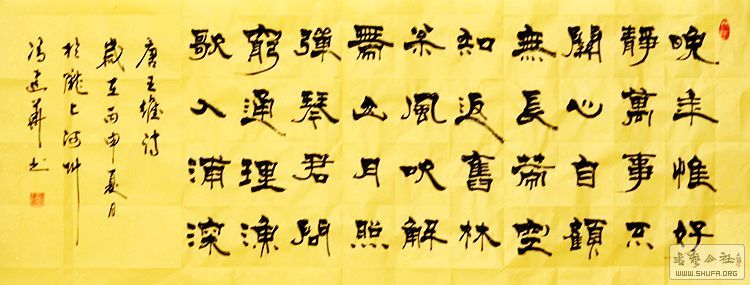 晚年惟好
靜萬事不
關心自顧
無長策空
知返舊林
枩風吹解
帶山月照
彈琴君問
窮通理漁
歌入浦深
唐王維詩
歲在丙申夏月
於隴上河州
冯建華书
书艺公社
WWW.SHUFA.ORG